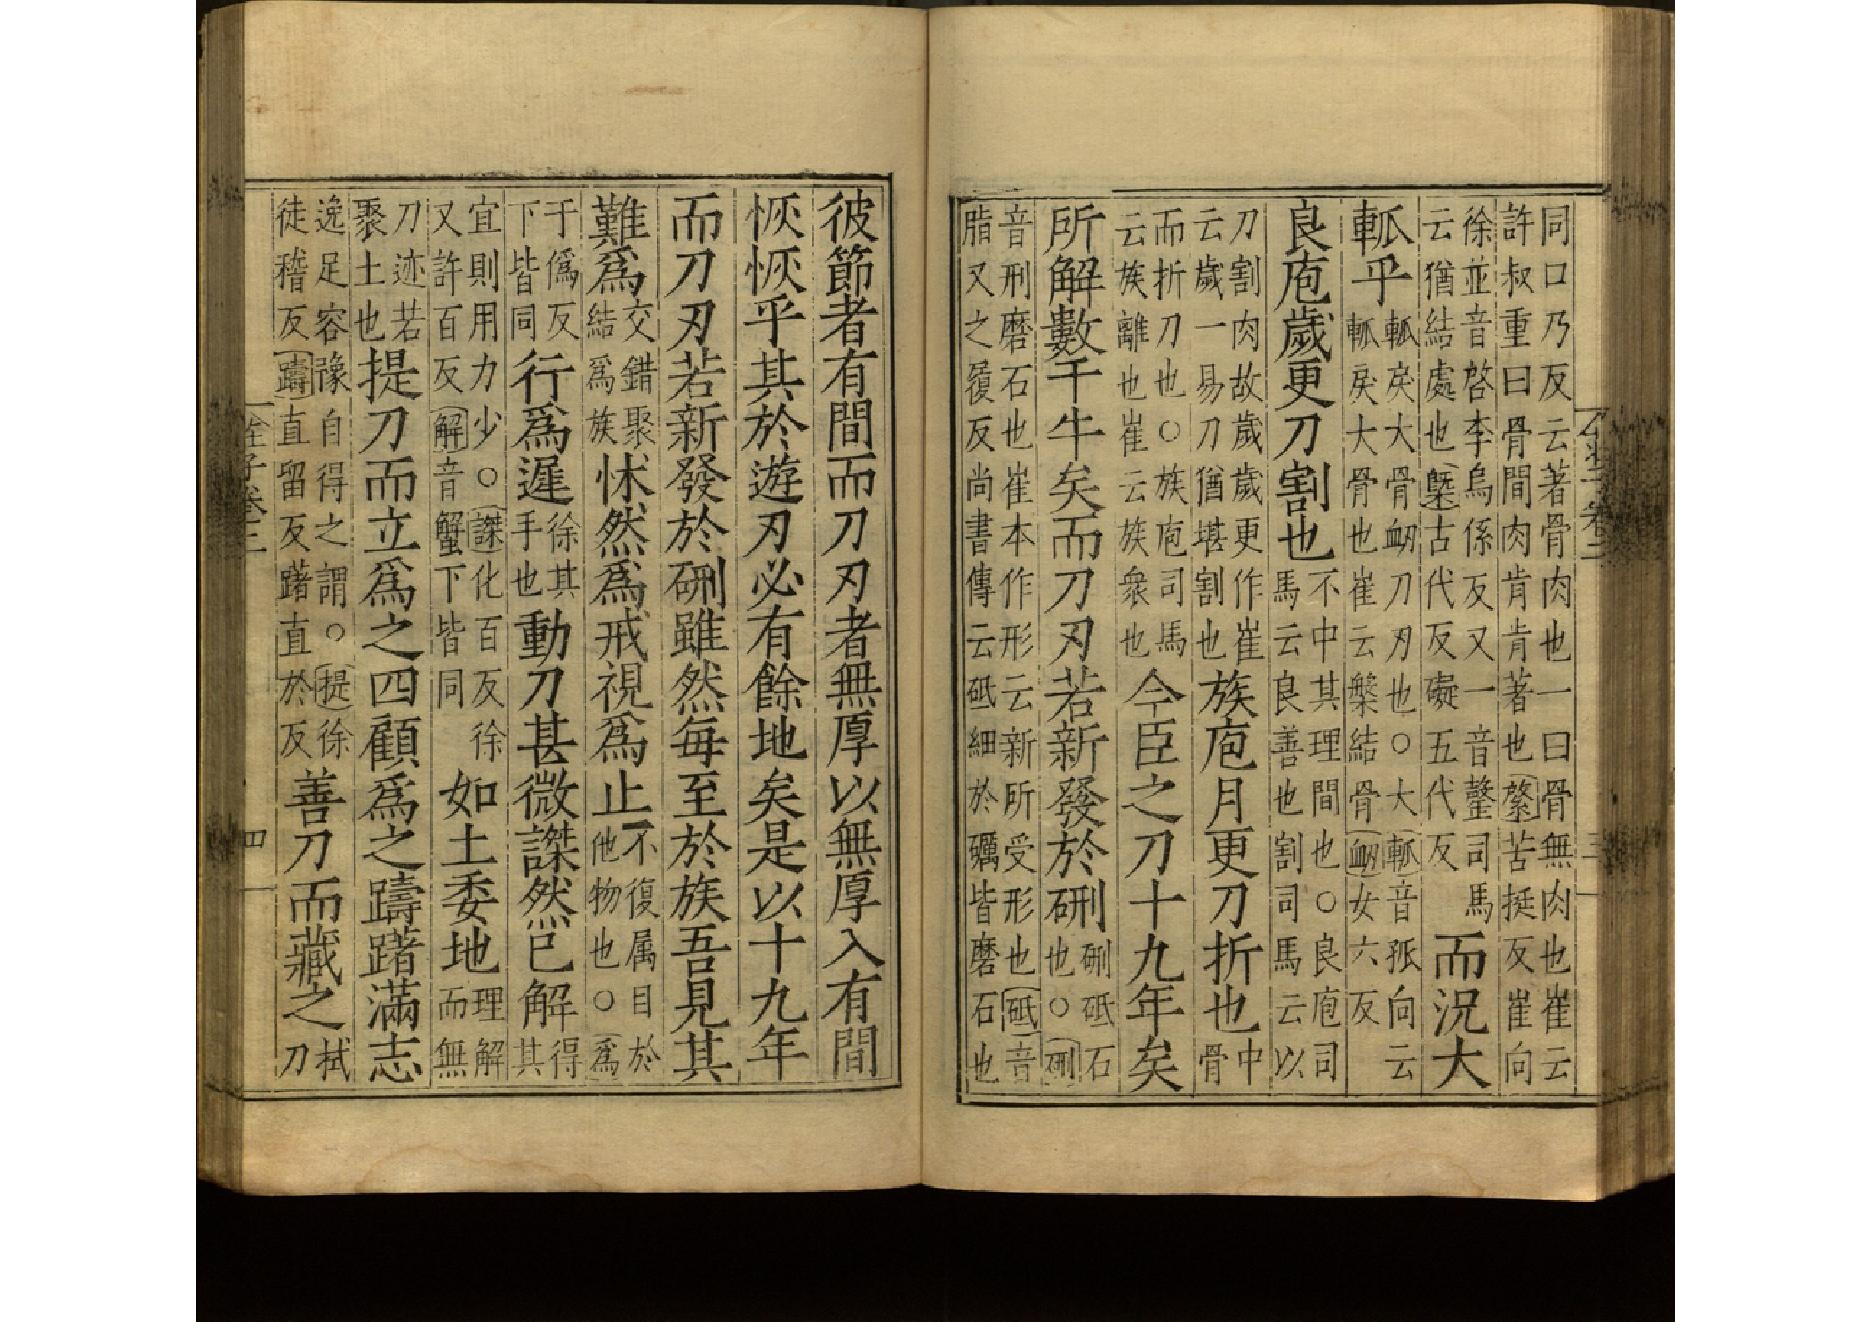 同口乃反云著骨肉也一曰骨無肉也崔云
許叔重曰骨間肉肯肯著也綮苦挺反崔向
徐並音啓李烏係反又一音罊司馬
云猶結處也㮣古代反礙五代反
而況大
軱乎
軱戾大骨衂刀刃也○大軱音孤向云
軱戾大骨也崔云槃結骨衂女六反
良庖歲更刀割也
不中其理間也○良庖司
馬云良善也割司馬云以
刀割肉故歲歲更作崔
云歲一易刀猶堪割也
族庖月更刀折也
中骨
而折刀也○族庖司馬
云族離也崔云族衆也
今臣之刀十九年矣
所解數千牛矣而刀刃若新發於硎
硎砥石
也○硎音
音刑磨石也崔本作形云新所受形也砥音
脂又之履反尚書傳云砥細於礪皆磨石也
彼節者有間而刀刃者無厚以無厚入有間
恢恢乎其於遊刃必有餘地矣是以十九年
而刀刃若新發於硎雖然每至於族吾見其
難爲
交錯聚
結爲族
怵然爲戒視爲止
不復属目於
他物也○爲
于僞反
下皆同
行爲遲
徐其
手也
動刀甚微謋然已解
得其
宜則用力少○謋化百反徐
又許百反解音蟹下皆同
如土委地
理解
而無
刀迹若
聚土也
提刀而立爲之四顧爲之躊躇滿志
逸足容豫自得之謂○提徐
徒稽反躊直留反躇直於反
善刀而藏之
拭
刀
莊子卷三
四
三